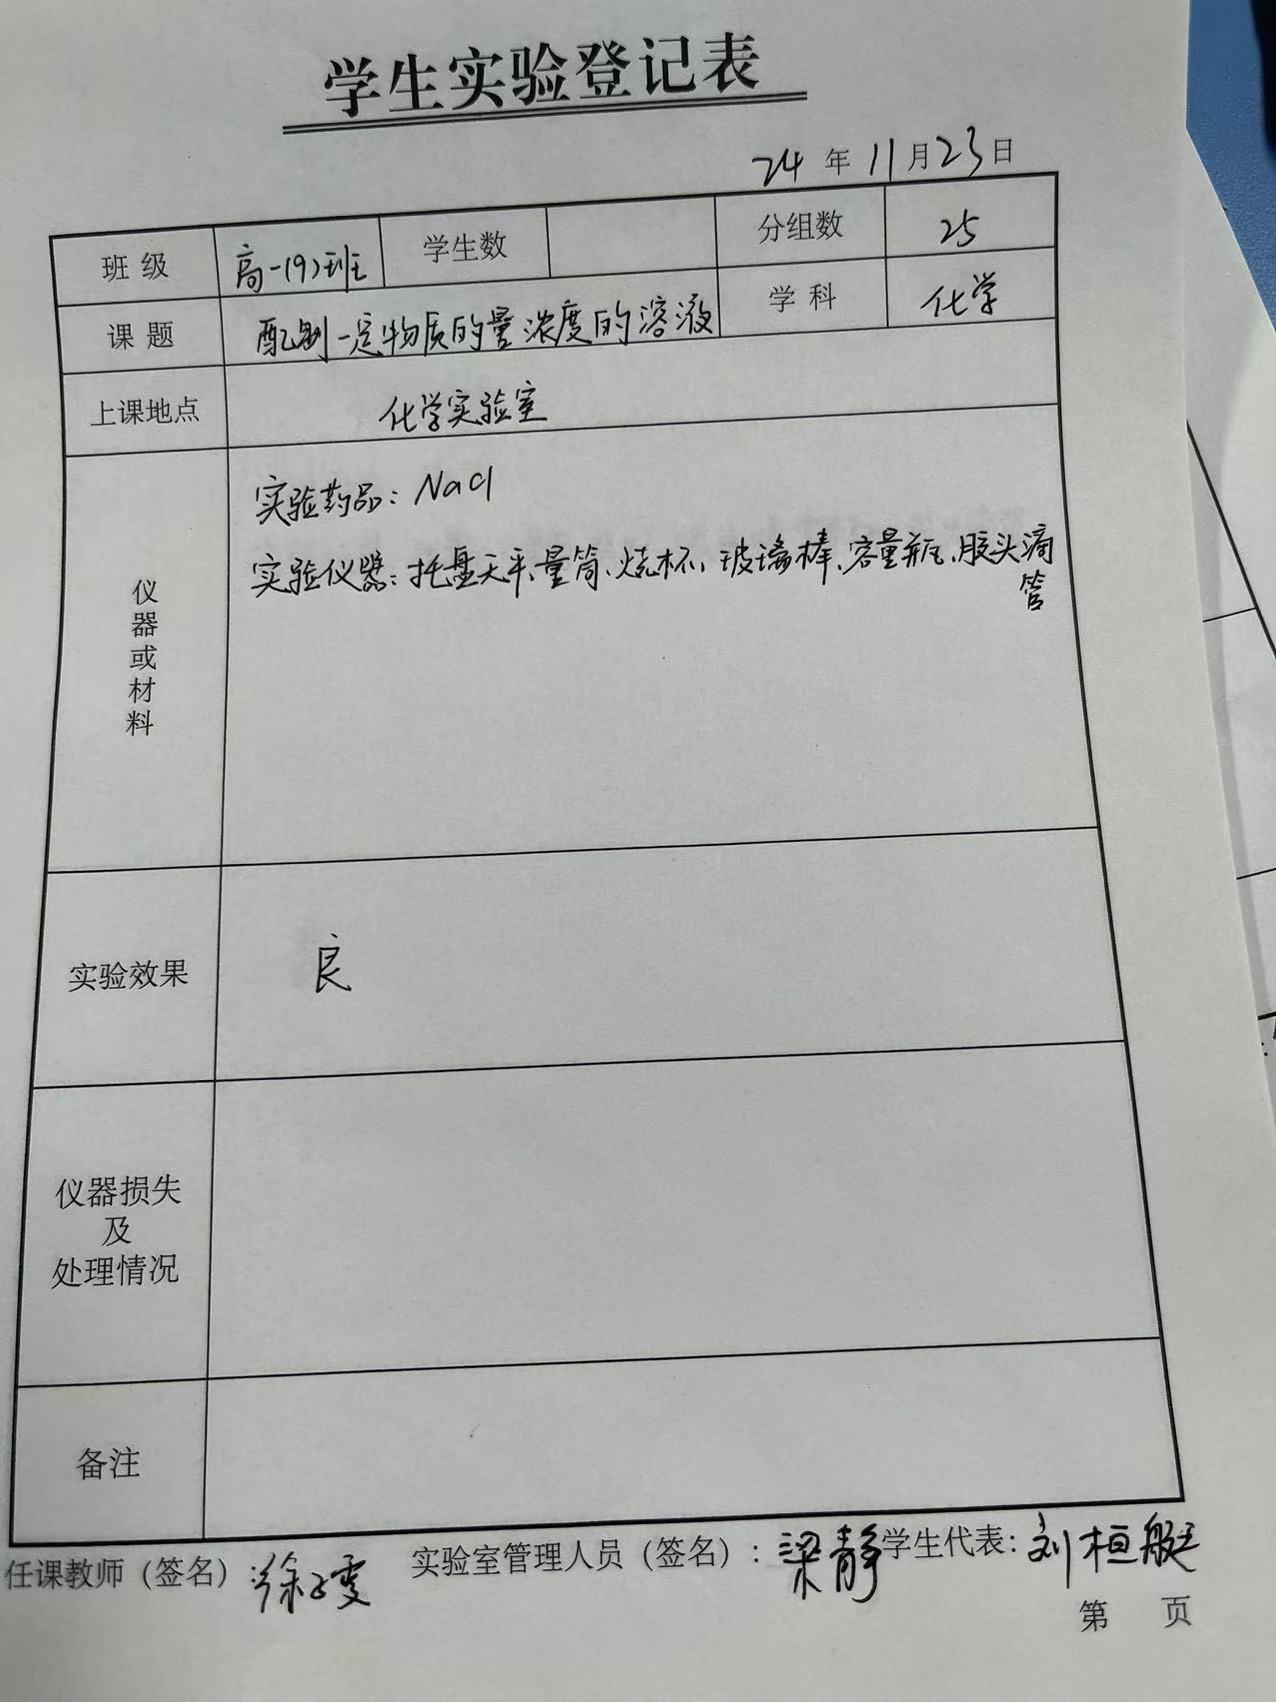 学生实验登记表
24年11月23日
班级 高一(9)班 学生数 分组数 25
课题 配制一定物质的量浓度的溶液 学科 化学
上课地点 化学实验室
仪器或材料
实验药品：NaCl
实验仪器：托盘天平、量筒、烧杯、玻璃棒、容量瓶、胶头滴
管
实验效果 良
仪器损失
及
处理情况
备注
任课教师（签名）： 实验室管理人员（签名）：梁静 学生代表：刘桓艇
第 页